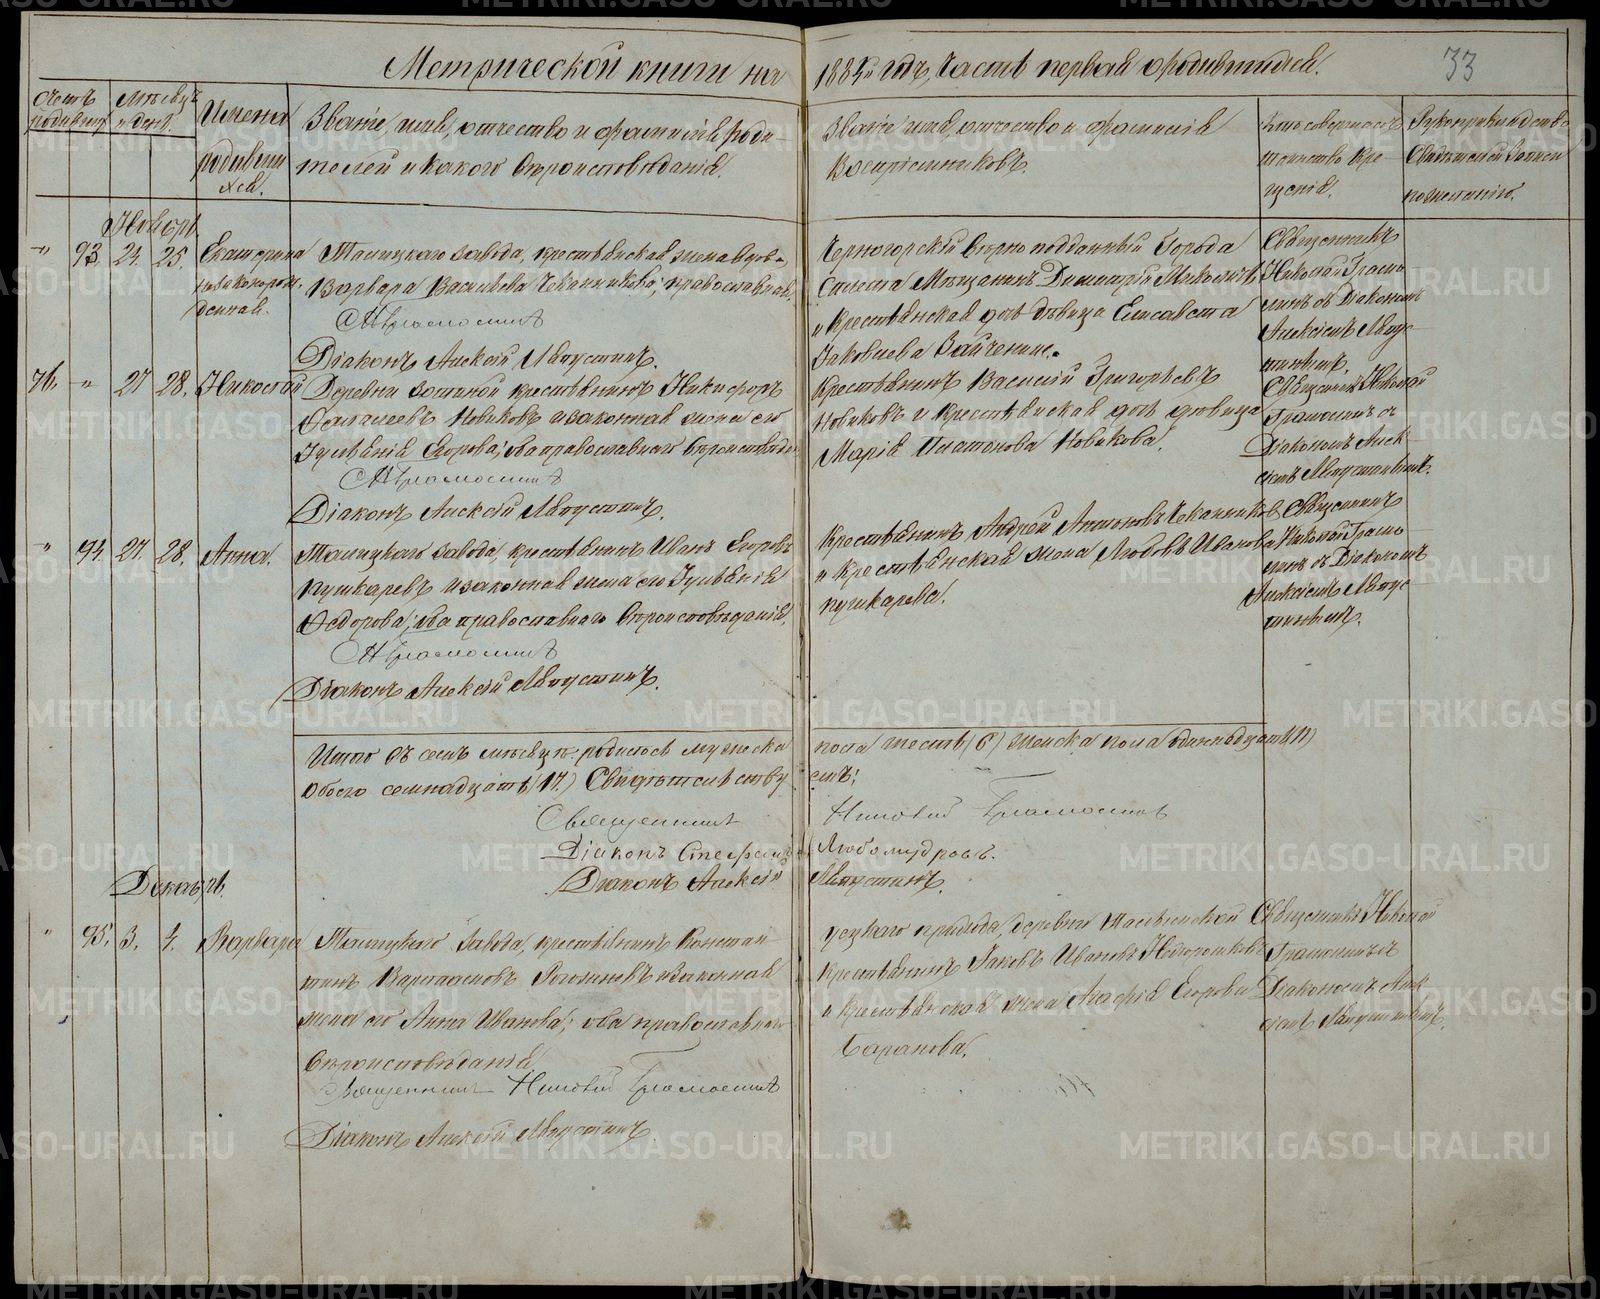 Метрической книги на 1884й годъ, часть первая о родившихся.
33
Счетъ родившихся
Мѣсяцъ и день.
Имена родившихся.
Званіе, имя, отчество и фамилія роди-
телей и какого вѣроисповѣданія.
Званіе, имя, отчество и фамилія
Воспріемниковъ.
Кто совершалъ
таинство кре-
щенія.
Рукоприкладство
Свидѣтелей записи
по желанію.
Ноябрь.
" 93. 24. 25. Екатерина
незаконорож-
денная.
Талицкаго завода, крестьянская жена вдова,
Варвара Васильева Чеканникова, православная.
Н Грамолинъ
Діаконъ Алексій Августинъ.
Черногорскій вѣрноподданный города
Мѣщанинъ Димитрій
и крестьянская дочь дѣвица Елисавета
Іаковлева Зайченина.
Священникъ
Николай Грамо-
линъ съ Діакономъ
Алексіемъ Авгус-
тинымъ.
76. " 27 28. Николай
Деревни крестьянинъ Никифоръ
Новиковъ и законная жена его
Іуліанія Егорова; оба православнаго вѣроисповѣданія
Н Грамолинъ
Діаконъ Алексій Августинъ.
Крестьянинъ Василій Григорьевъ
Новиковъ и крестьянская дочь дѣвица
Марія Платонова Новикова.
Священникъ Николай
Грамолинъ съ
Діакономъ Алек-
сіемъ Августинымъ.
" 94. 27. 28. Анна.
Талицкаго завода, крестьянинъ Иванъ Егоровъ
Пушкаревъ и законная жена его Іуліанія
Ѳедорова; оба православнаго вѣроисповѣданія,
Н Грамолинъ
Діаконъ Алексій Августинъ.
Крестьянинъ Андрей Антоновъ Чеканниковъ
и крестьянская жена Любовь Иванова
Пушкарева.
Священникъ
Николай Грамо-
линъ съ Діакономъ
Алексіемъ Авгус-
тинымъ.
Итого въ семъ мѣсяцѣ родилось мужеска пола шесть (6) женска пола одиннадцать (11)
Обоего семнадцать (17.) Свидѣтельству емъ:
Священникъ Николай Грамолинъ
Діаконъ Стефанъ Любомудровъ.
Діаконъ Алексій Августинъ.
Декабрь.
" 95. 3. 4. Варвара
Талицкаго завода, крестьянинъ Констан-
тинъ и законная
жена его Анна Иванова; оба православнаго
вѣроисповѣданія.
Священникъ Николай Грамолинъ
Діаконъ Алексій Августинъ.
прихода, деревни
крестьянинъ Іаковъ Ивановъ
и крестьянская жена Агафія Егорова
Баранова.
Священникъ Николай
Грамолинъ съ
Діакономъ Алек-
сіемъ Августинымъ.
METRIKI.GASO-URAL.RU